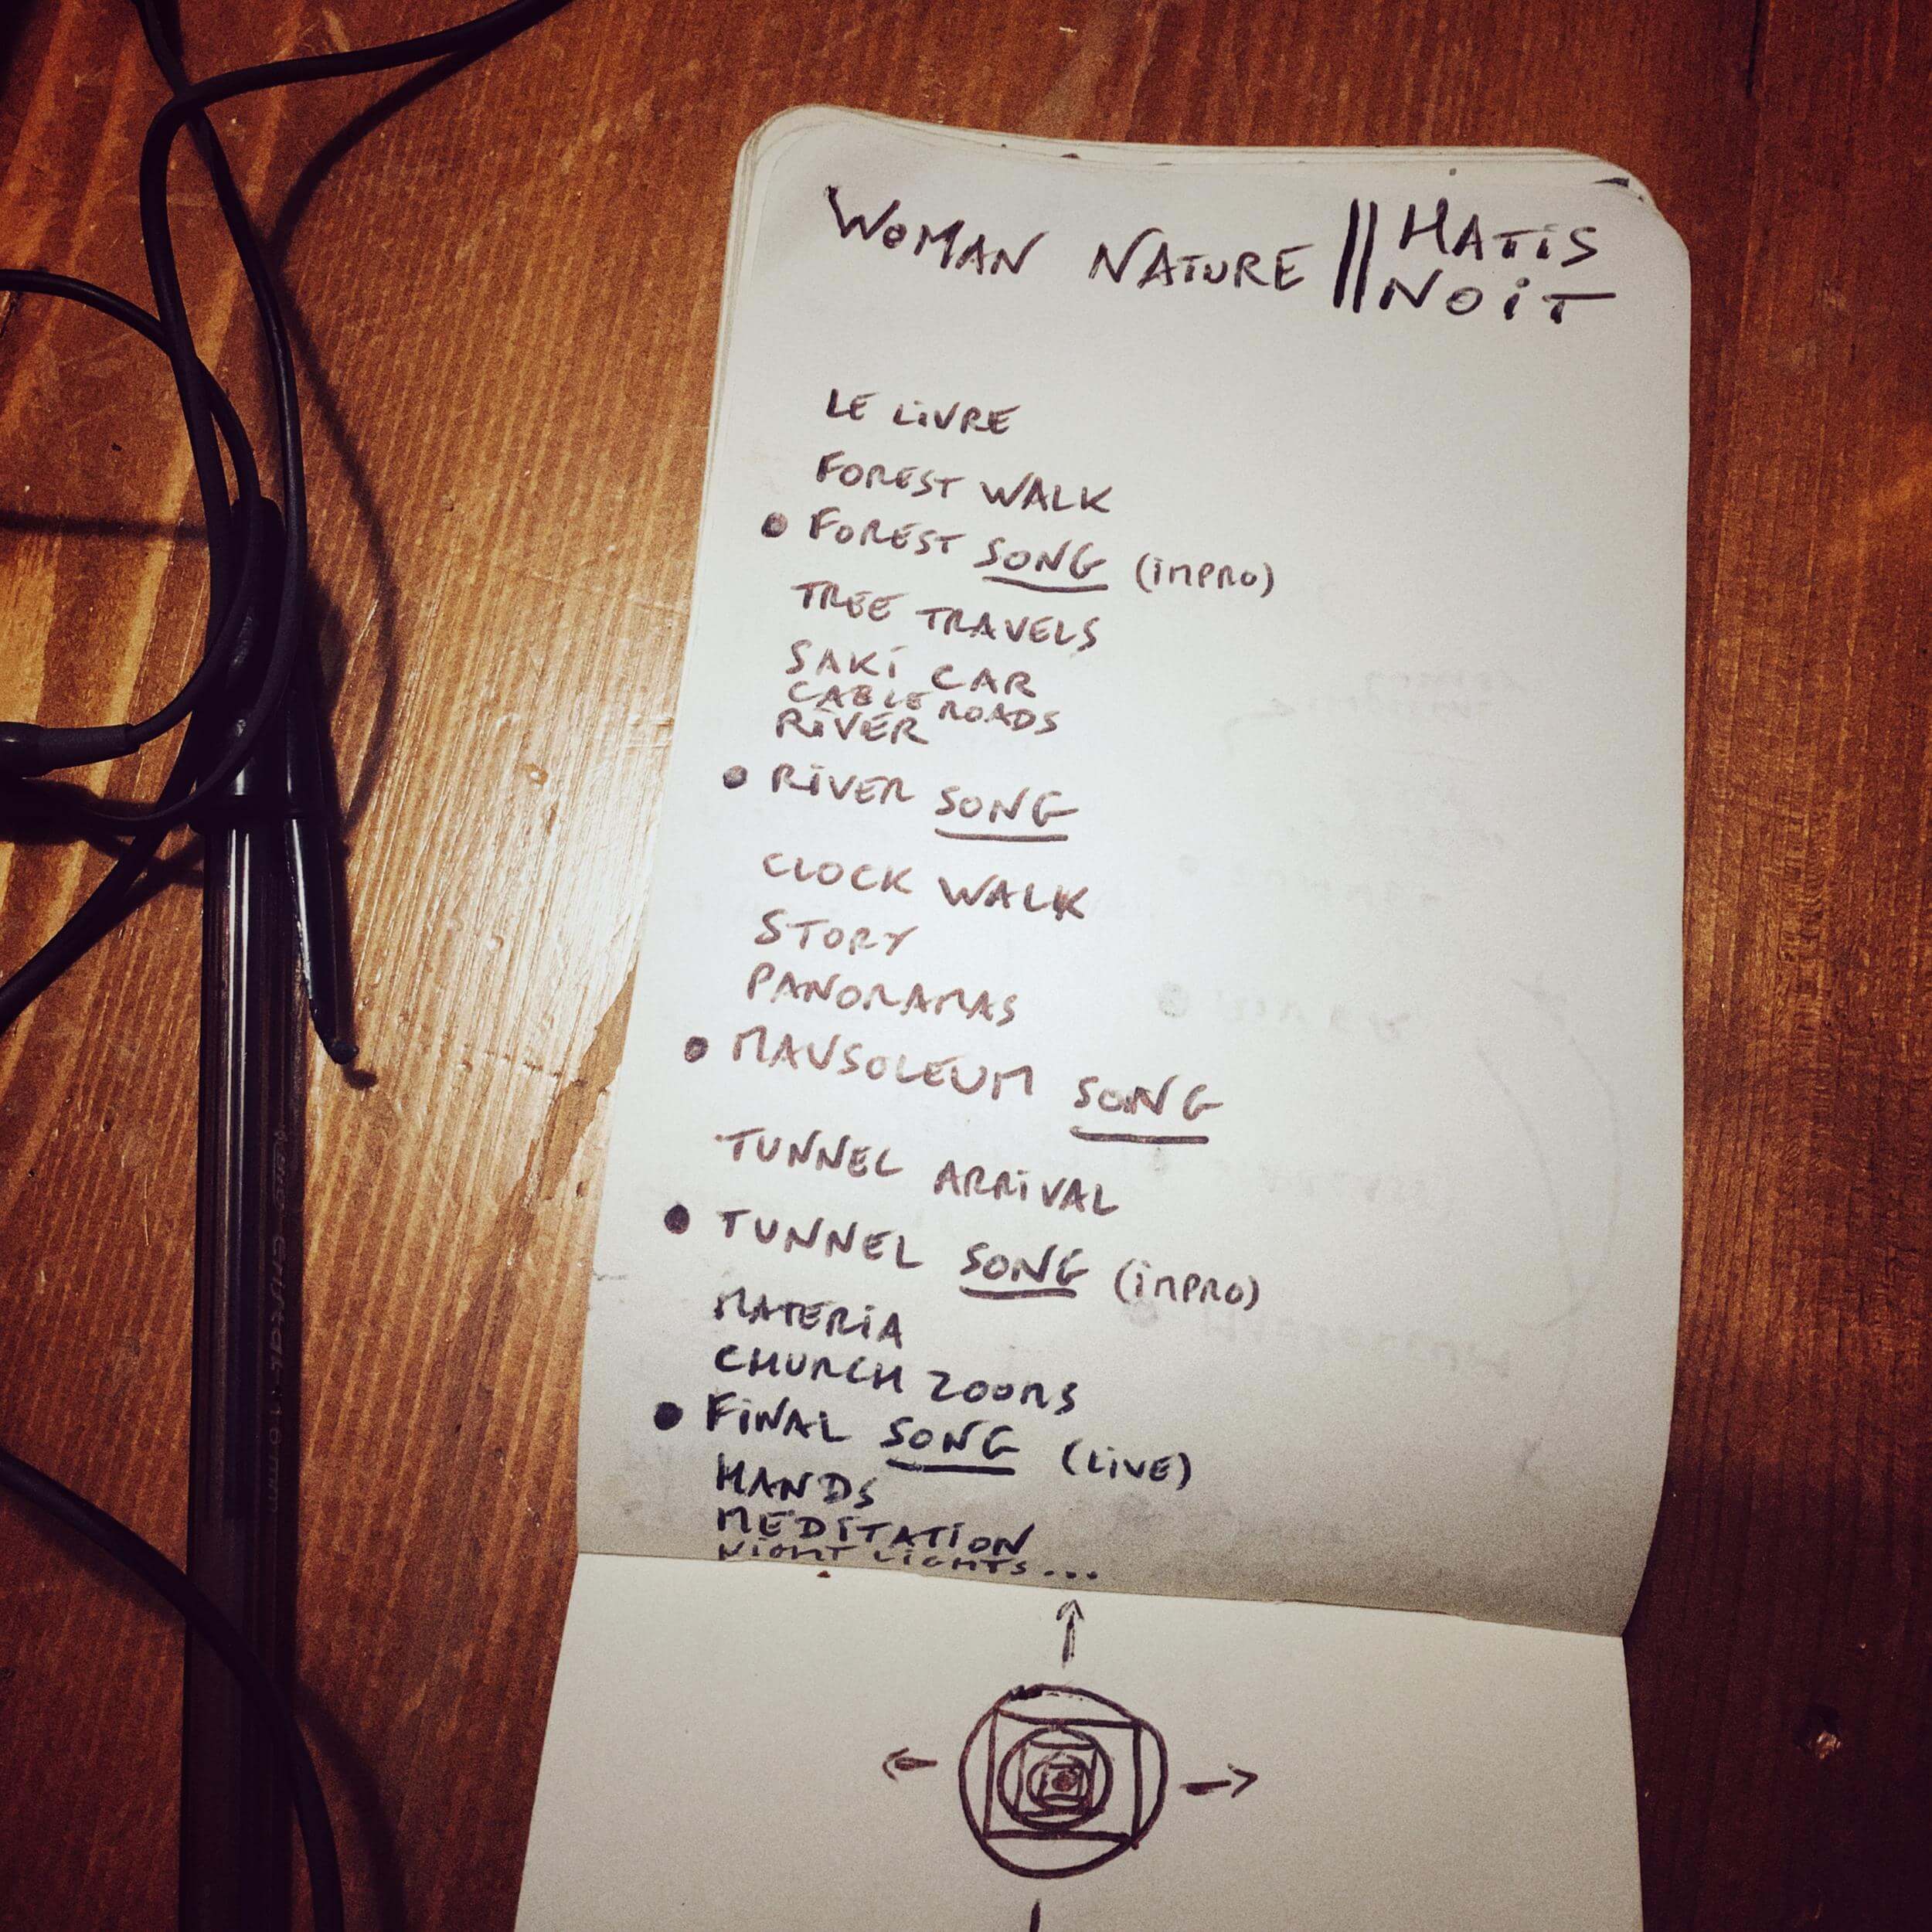 WOMAN NATURE || HATIS NOIT
LE LIVRE
FOREST WALK
● FOREST SONG (IMPRO)
TREE TRAVELS
SAKI CAR
CABLE ROADS
RIVER
● RIVER SONG
CLOCK WALK
STORY
PANORAMAS
● MAUSOLEUM SONG
TUNNEL ARRIVAL
● TUNNEL SONG (IMPRO)
MATERIA
CHURCH ZOOMS
● FINAL SONG (LIVE)
HANDS
MEDITATION
NIGHT LIGHTS...